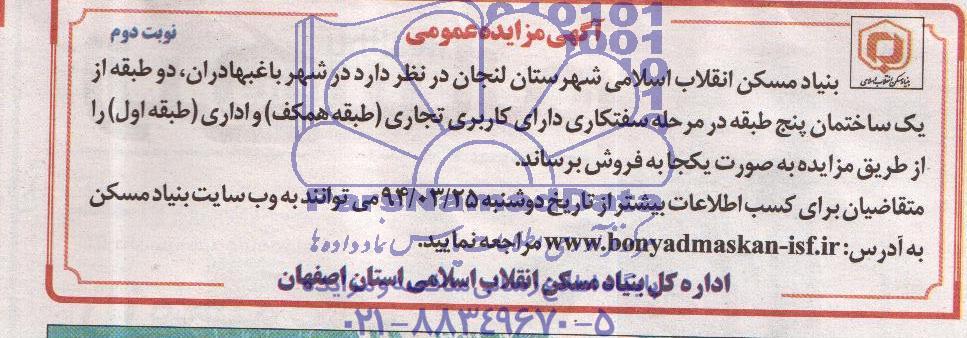 آگهی مزایده عمومی
نوبت دوم
بنیاد مسکن انقلاب اسلامی
بنیاد مسکن انقلاب اسلامی شهرستان لنجان در نظر دارد در شهر باغبهادران، دو طبقه از
یک ساختمان پنج طبقه در مرحله سفتکاری دارای کاربری تجاری (طبقه همکف) و اداری (طبقه اول) را
از طریق مزایده به صورت یکجا به فروش برساند.
متقاضیان برای کسب اطلاعات بیشتر از تاریخ دوشنبه ۹۴/۰۳/۲۵ می توانند به وب سایت بنیاد مسکن
به آدرس: www.bonyadmaskan-isf.ir مراجعه نمایید.
اداره کل بنیاد مسکن انقلاب اسلامی استان اصفهان
۰۲۱-۸۸۳۴۹۶۷۰-۵